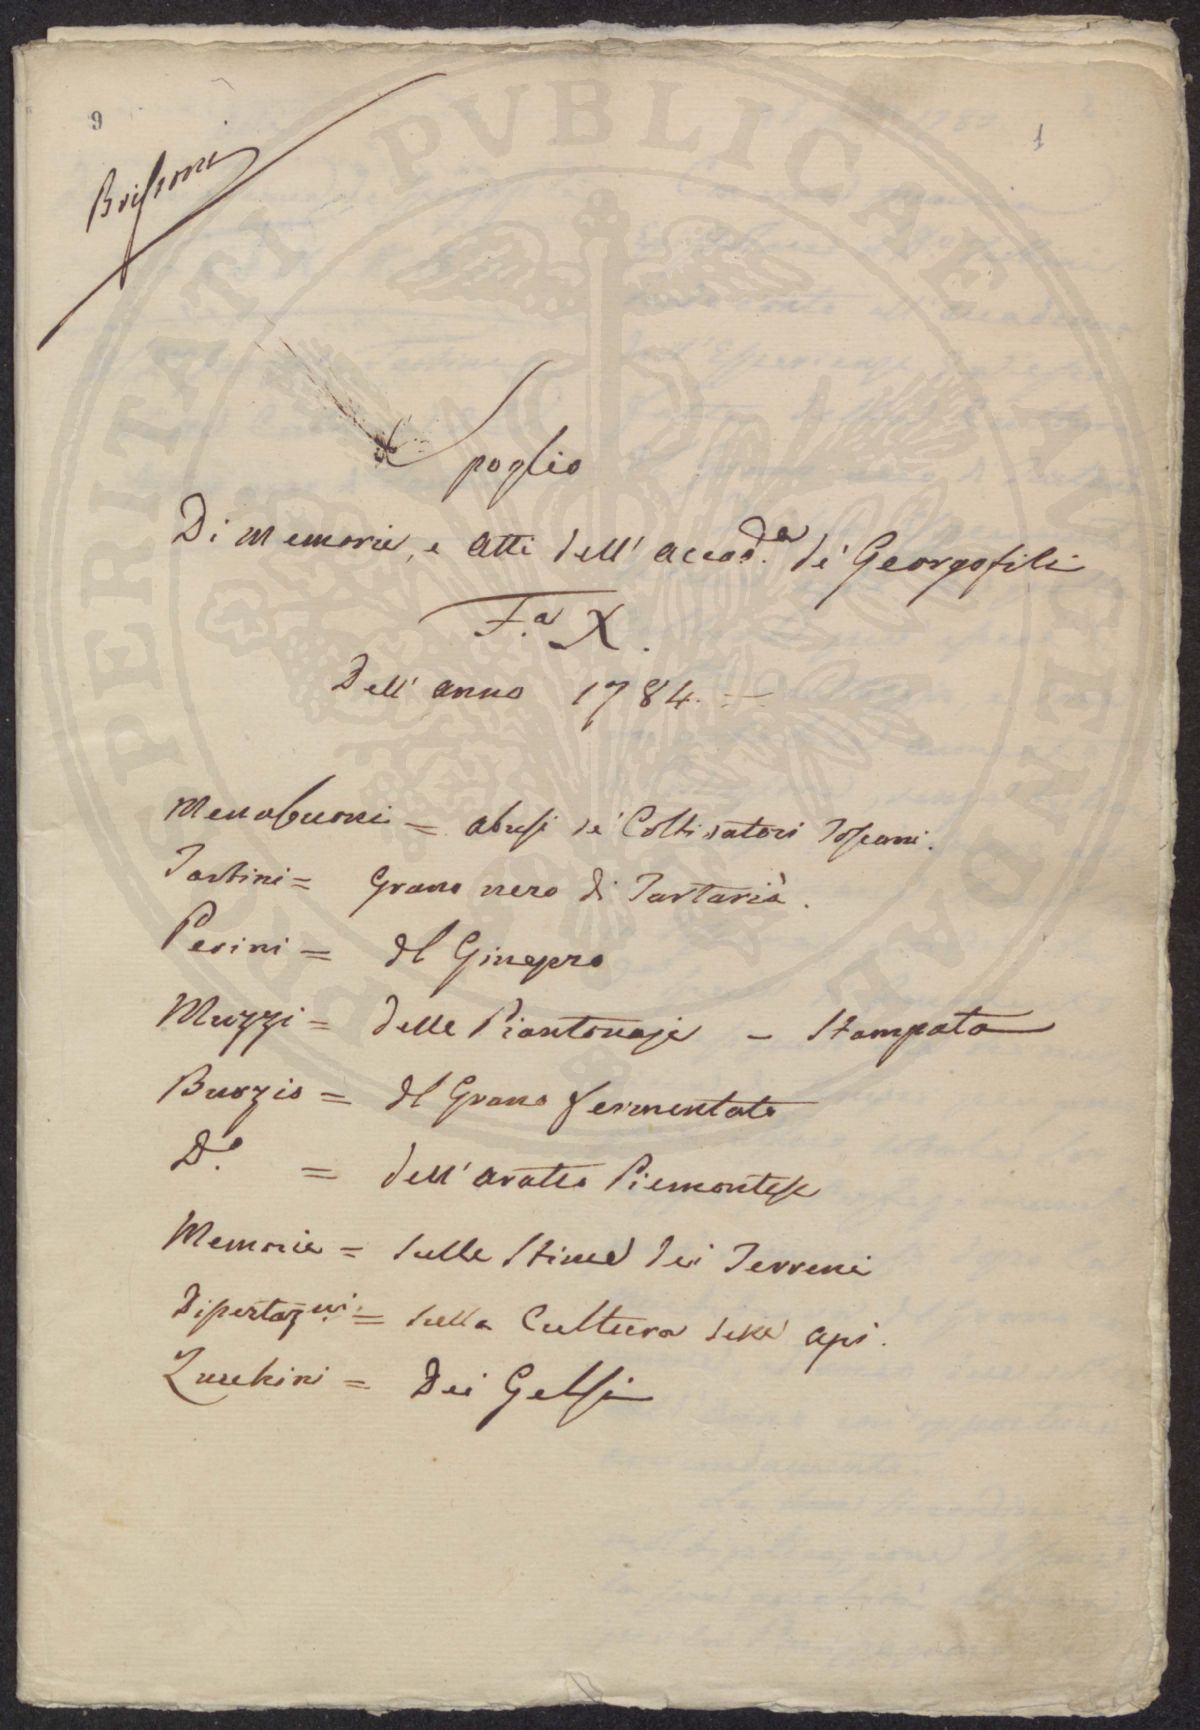 9
1
Brissoni
Spoglio
Di Memorie, e Atti dell' Accad.a de' Georgofili
F.a X.
Dell' anno 1784. =
Menabuoni = abusi de' Coltivatori Toscani.
Tartini = Grano nero di Tartarià.
Perini = Il Ginepro
Muzzi = delle Piantonaje - Stampata
Burzio = Il Grano fermentato
D.o = dell' aratro Piemontese
Memorie = sulle Stime dei Terreni
Dissertaz.ni = sulla Cultura delle api.
Zucchini = Dei Gelsi
PERITATI PVBLICAE